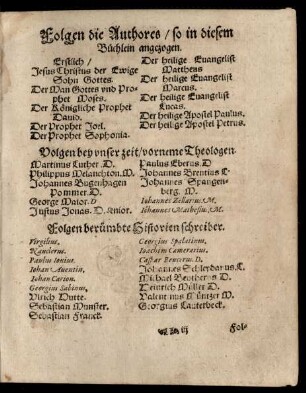 Folgen die Authores / so in diesem
Büchlein angezogen.
Erstlich /
Jesus Christus der Ewige
Sohn Gottes.
Der Man Gottes vnd Pro-
phet Moses.
Der Königliche Prophet
Dauid.
Der Prophet Joel.
Der Prophet Sophonia.
Der heilige Euangelist
Mattheus
Der heilige Euangelist
Marcus.
Der heilige Euangelist
Lucas.
Der heilige Apostel Paulus.
Der heilige Apostel Petrus.
Volgen bey vnser zeit / vorneme Theologen.
Martinus Luther. D.
Philippus Melanchton. M.
Johannes Bugenhagen
Pommer. D.
George Maior. D
Justus Jonas. D. Senior.
Paulus Eberus. D.
Johannes Brentius
Johannes Spangen-
berg. M.
Iohannes Mathesius. M.
Folgen berümbte Historien schreiber.
Virgilius.
Nauclerus.
Paulus Iouius.
Iohan Auentin.
Iohan Carion.
Georgius Sabinus.
Vlrich Hutte.
Sebastian Munster.
Sebastian Franck.
Georgius Spalatinus.
Ioachim Camerarius.
Caspar Peucerus. D.
Johannes Schleydanus.
Michael Beutherus D.
Heinrich Müller D.
Valentinus Müntzer M.
Georgius Lauterbeck.
Fol-